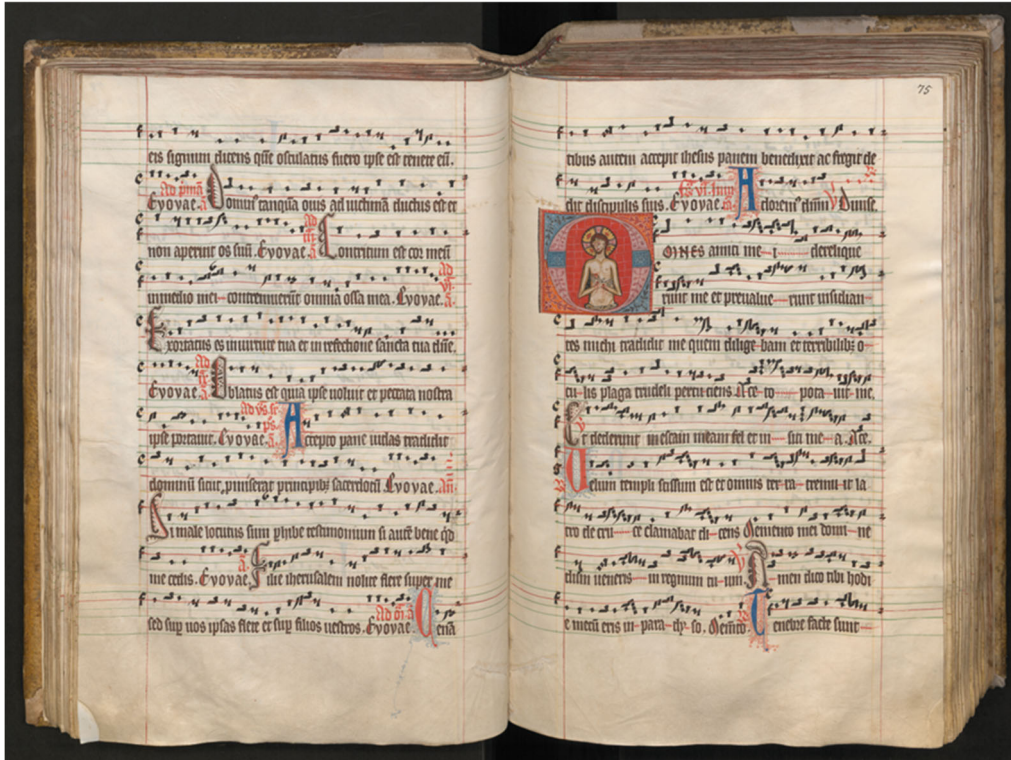 eis signum dicens quē osculatus fuero ipse est tenete eū.
Ad p̄mā
Euouae. a. Domin᷒ tanquā ouis ad uictimā ductus est et
Ad
non aperuit os suū. Euouae. a. Contritum est cor meū
Ad
in medio mei contremuerūt omnia ossa mea. Euouae. a.
Exortatus es in uirtute tua et in refectione sancta tua dn̄e.
Ad
Euouae. a. Oblatus est quia ipse uoluit et peccata nostra
Ad
ipse portauit. Euouae. a. Accepto pane iudas tradidit
dominū sacerdotū Euouae. An̄.
Si male locutus sum phibe testimonium si autē bene qd
me cedis. Euouae. a. Filie iherusalem nolite flere super me
sed sup uos ipsas flere et sup filios uestros. Euouae. Cena
75
tibus autem accepit ihesus panem benedixit ac fregit de
dit discipulis suis. Euouae. Adlorem dauid
OMNES amici mei derelique
runt me et preualue runt insidian
tes michi tradidit me quem dilige bam et terribilib᷒ o
cu lis plaga crudeli percu ciens Ace to pota uit me.
Et dederunt in escam meam fel et in siti me a. Ace.
Uelum templi scissum est et omnis ter ra tremu it la
tro de cru ce clamabat di cens Memento mei domi ne
dum ueneris in regnum tu um. V Amen dico tibi hodi
e mecū eris in para dy so. Mem̄to. Tenebre facte sunt